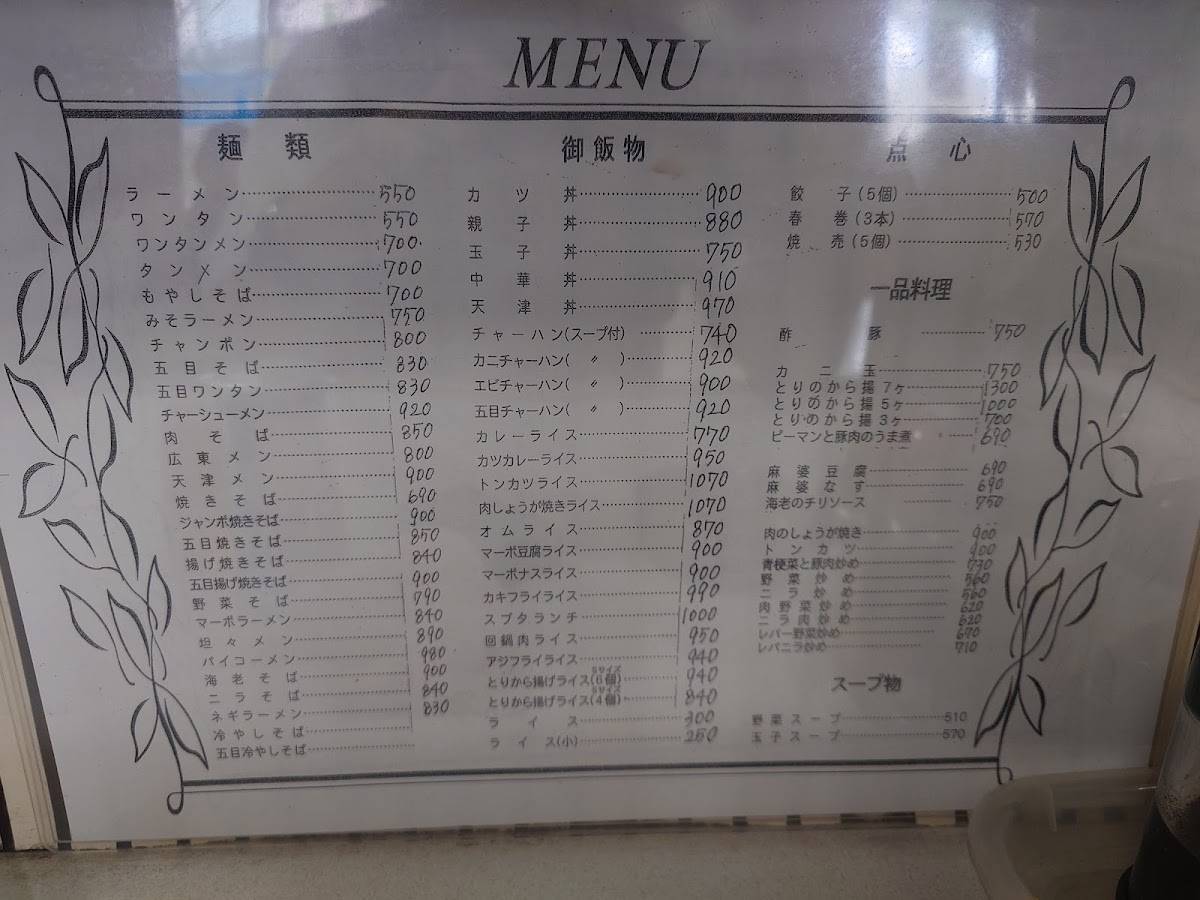 MENU
麺類
ラーメン 550
ワンタン 550
ワンタンメン 700
タンメン 700
もやしそば 700
みそラーメン 750
チャンポン 800
五目そば 830
五目ワンタン 830
チャーシューメン 920
肉そば 850
広東メン 800
天津メン 900
焼きそば 690
ジャンボ焼きそば 900
五目焼きそば 850
揚げ焼きそば 840
五目揚げ焼きそば 900
野菜そば 790
マーボラーメン 840
坦々メン 890
パイコーメン 980
海老そば 900
ニラそば 840
ネギラーメン 830
冷やしそば
五目冷やしそば
御飯物
カツ丼 900
親子丼 880
玉子丼 750
中華丼 910
天津丼 970
チャーハン(スープ付) 740
カニチャーハン(〃) 920
エビチャーハン(〃) 900
五目チャーハン(〃) 920
カレーライス 770
カツカレーライス 950
トンカツライス 1070
肉しょうが焼きライス 1070
オムライス 870
マーボ豆腐ライス 900
マーボナスライス 900
カキフライライス 990
スブタランチ 1000
回鍋肉ライス 950
アジフライライス 940
とりから揚げライス(6個) 940
Sサイズ
とりから揚げライス(4個) 840
ライス 300
ライス(小) 250
点心
餃子(5個) 500
春巻(3本) 570
焼売(5個) 530
一品料理
酢豚 750
カニ玉 750
とりのから揚7ヶ 1300
とりのから揚5ヶ 1000
とりのから揚3ヶ 700
ピーマンと豚肉のうま煮 690
麻婆豆腐 690
麻婆なす 690
海老のチリソース 750
肉のしょうが焼き 900
トンカツ 900
青梗菜と豚肉炒め 730
野菜炒め 560
ニラ炒め 560
肉野菜炒め 620
ニラ肉炒め 620
レバー野菜炒め 670
レバニラ炒め 710
スープ物
野菜スープ 510
玉子スープ 570